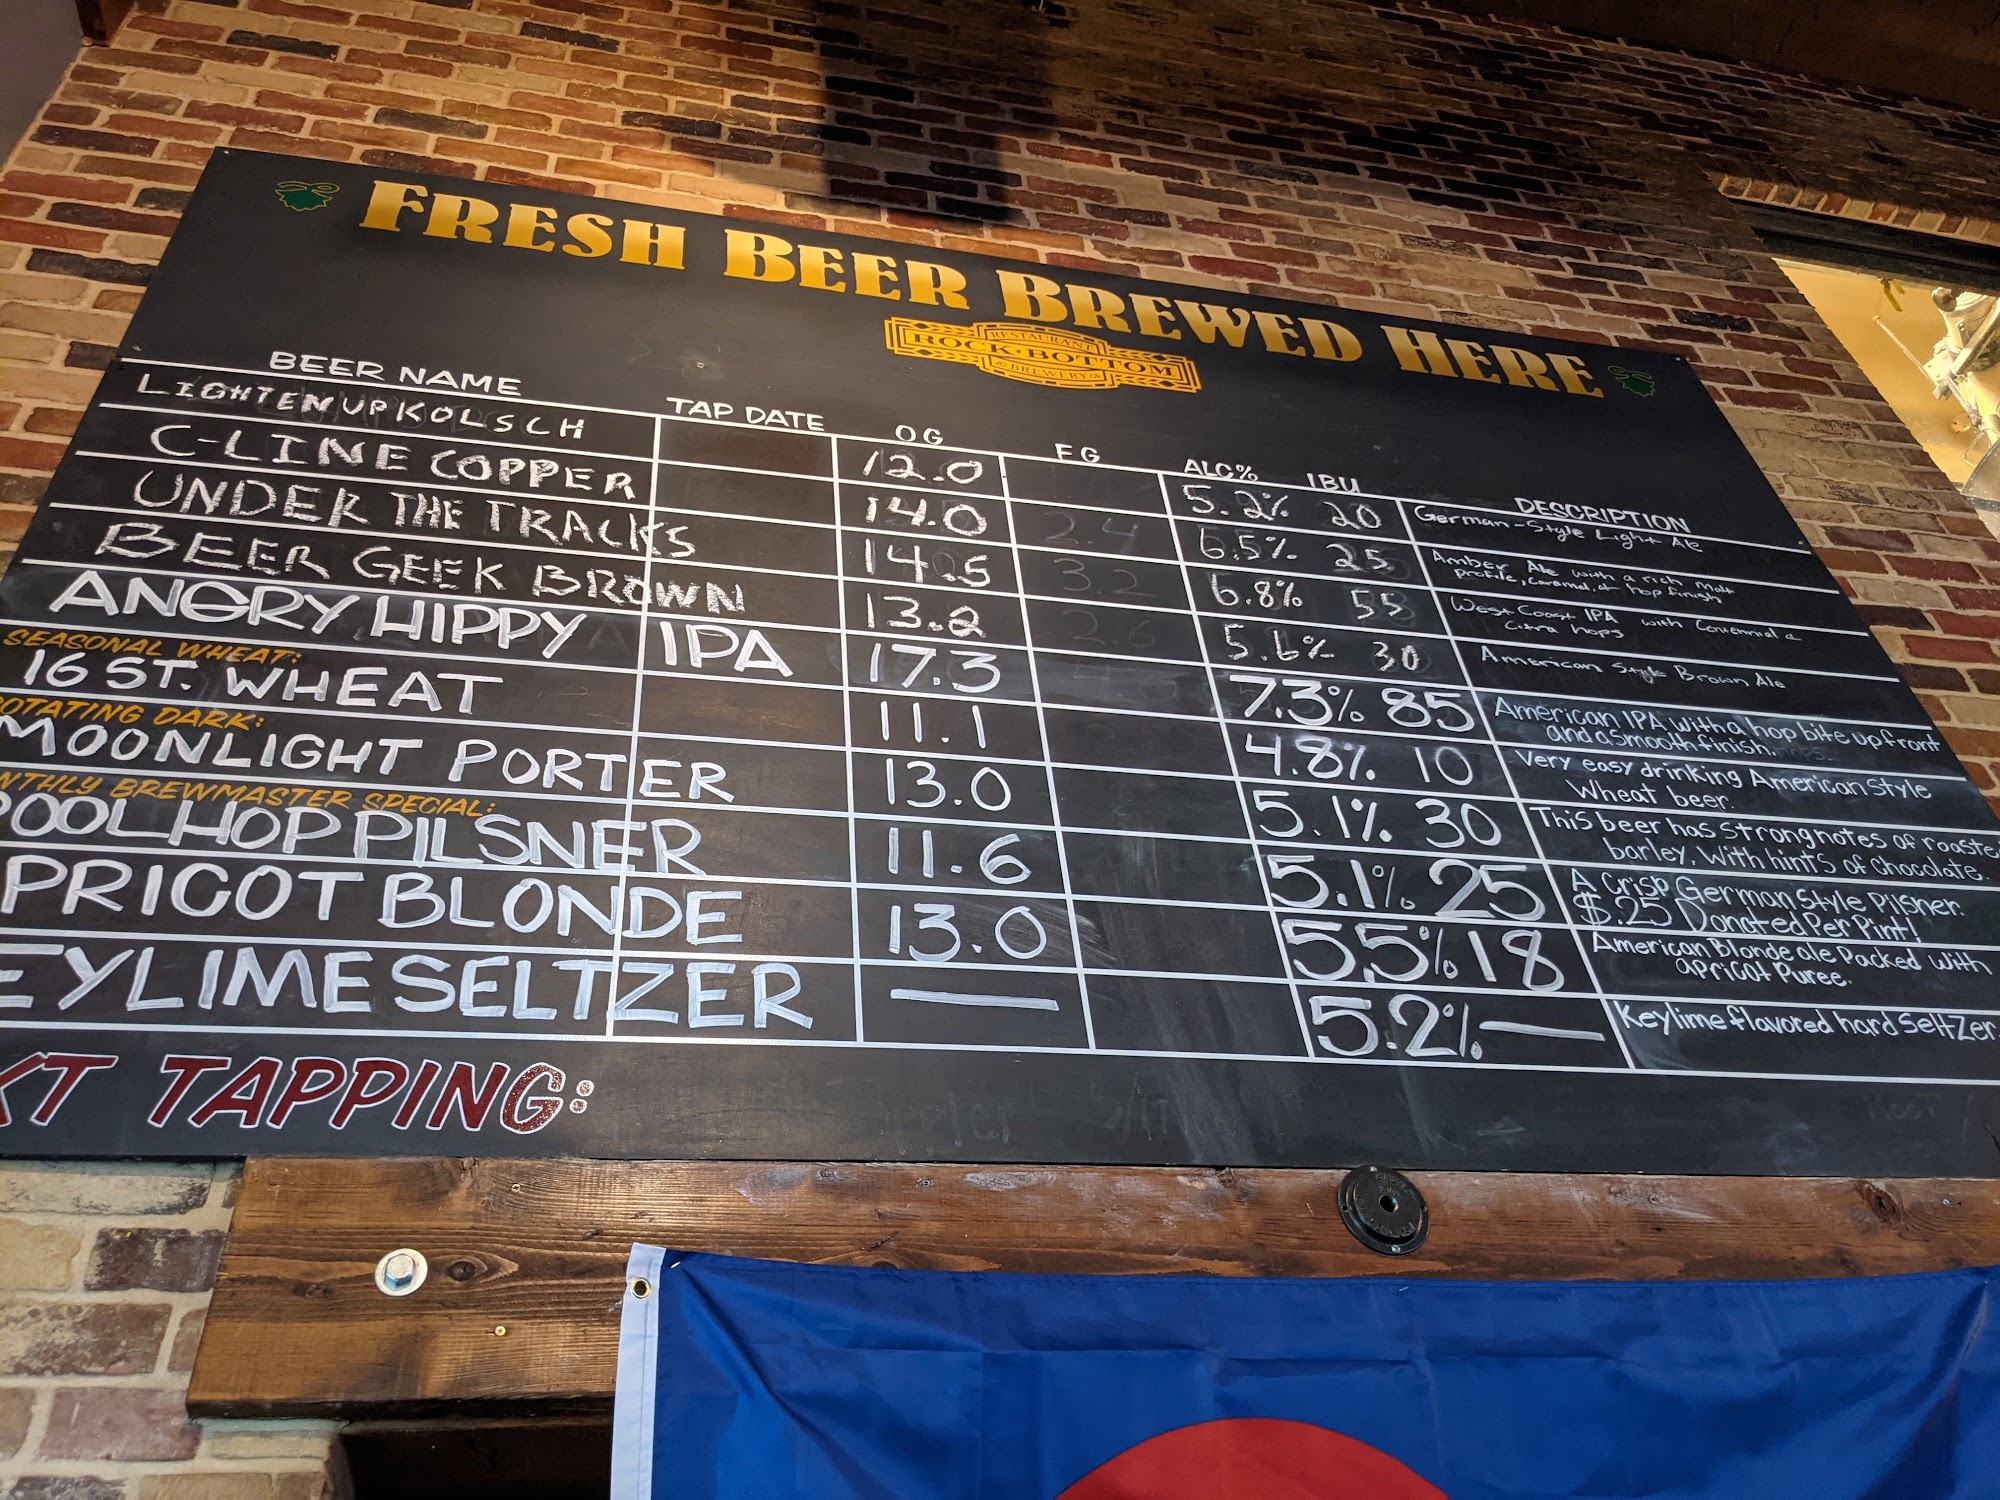 FRESH BEER BREWED HERE
RESTAURANT
ROCK BOTTOM
BREWERY
BEER NAME TAP DATE OG FG ALC% IBU DESCRIPTION
LIGHTEN UP KOLSCH 12.0 5.2% 20 German-Style Light Ale
C-LINE COPPER 14.0 6.5% 25 Amber Ale with a rich malt
profile, caramel, & hop finish
UNDER THE TRACKS 14.5 6.8% 55 West Coast IPA with Centennial &
Citra hops
BEER GEEK BROWN 13.2 5.6% 30 American Style Brown Ale
ANGRY HIPPY IPA 17.3 7.3% 85 American IPA with a hop bite upfront
and a smooth finish.
SEASONAL WHEAT:
16 ST. WHEAT 11.1 4.8% 10 Very easy drinking American Style
Wheat beer.
ROTATING DARK:
MOONLIGHT PORTER 13.0 5.1% 30 This beer has strong notes of roaste
barley. With hints of Chocolate.
NTHLY BREWMASTER SPECIAL:
POOL HOP PILSNER 11.6 5.1% 25 A Crisp German Style Pilsner.
$.25 Donated Per Pint!
PRICOT BLONDE 13.0 5.5% 18 American Blonde ale Packed with
apricot Puree.
EYLIME SELTZER — 5.2% — Keylime flavored hard Seltzer.
XT TAPPING: